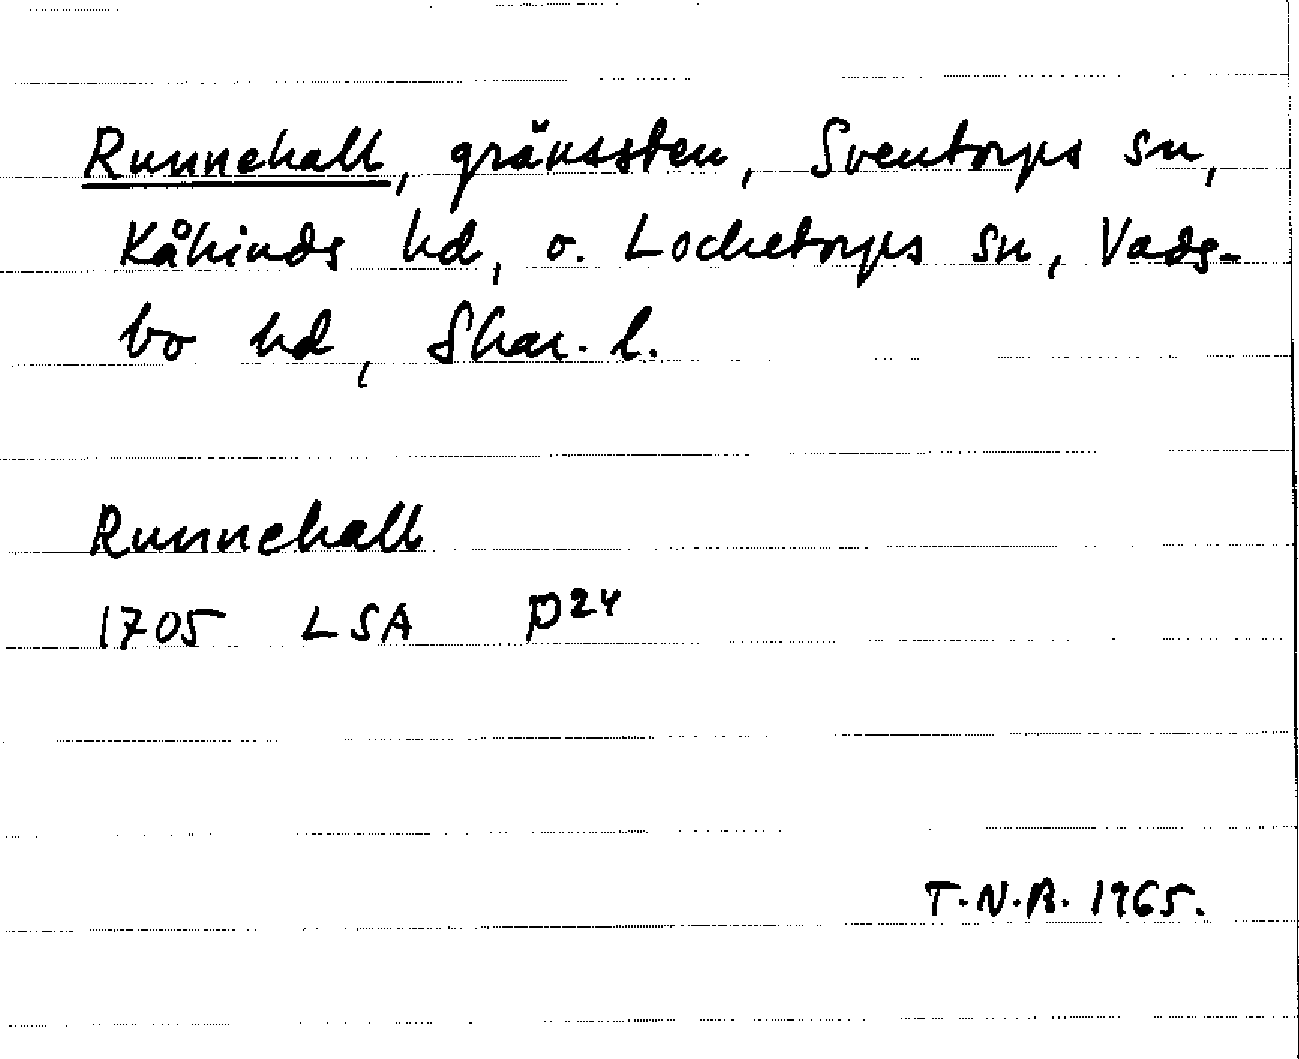 Runnehall, gränssten, Sventorps sn,
Kåkinds hd, o. Locketorps sn, Vads-
bo hd, Skar. l.
Runnehall
1705 LSA P24
T.N.A. 1965.